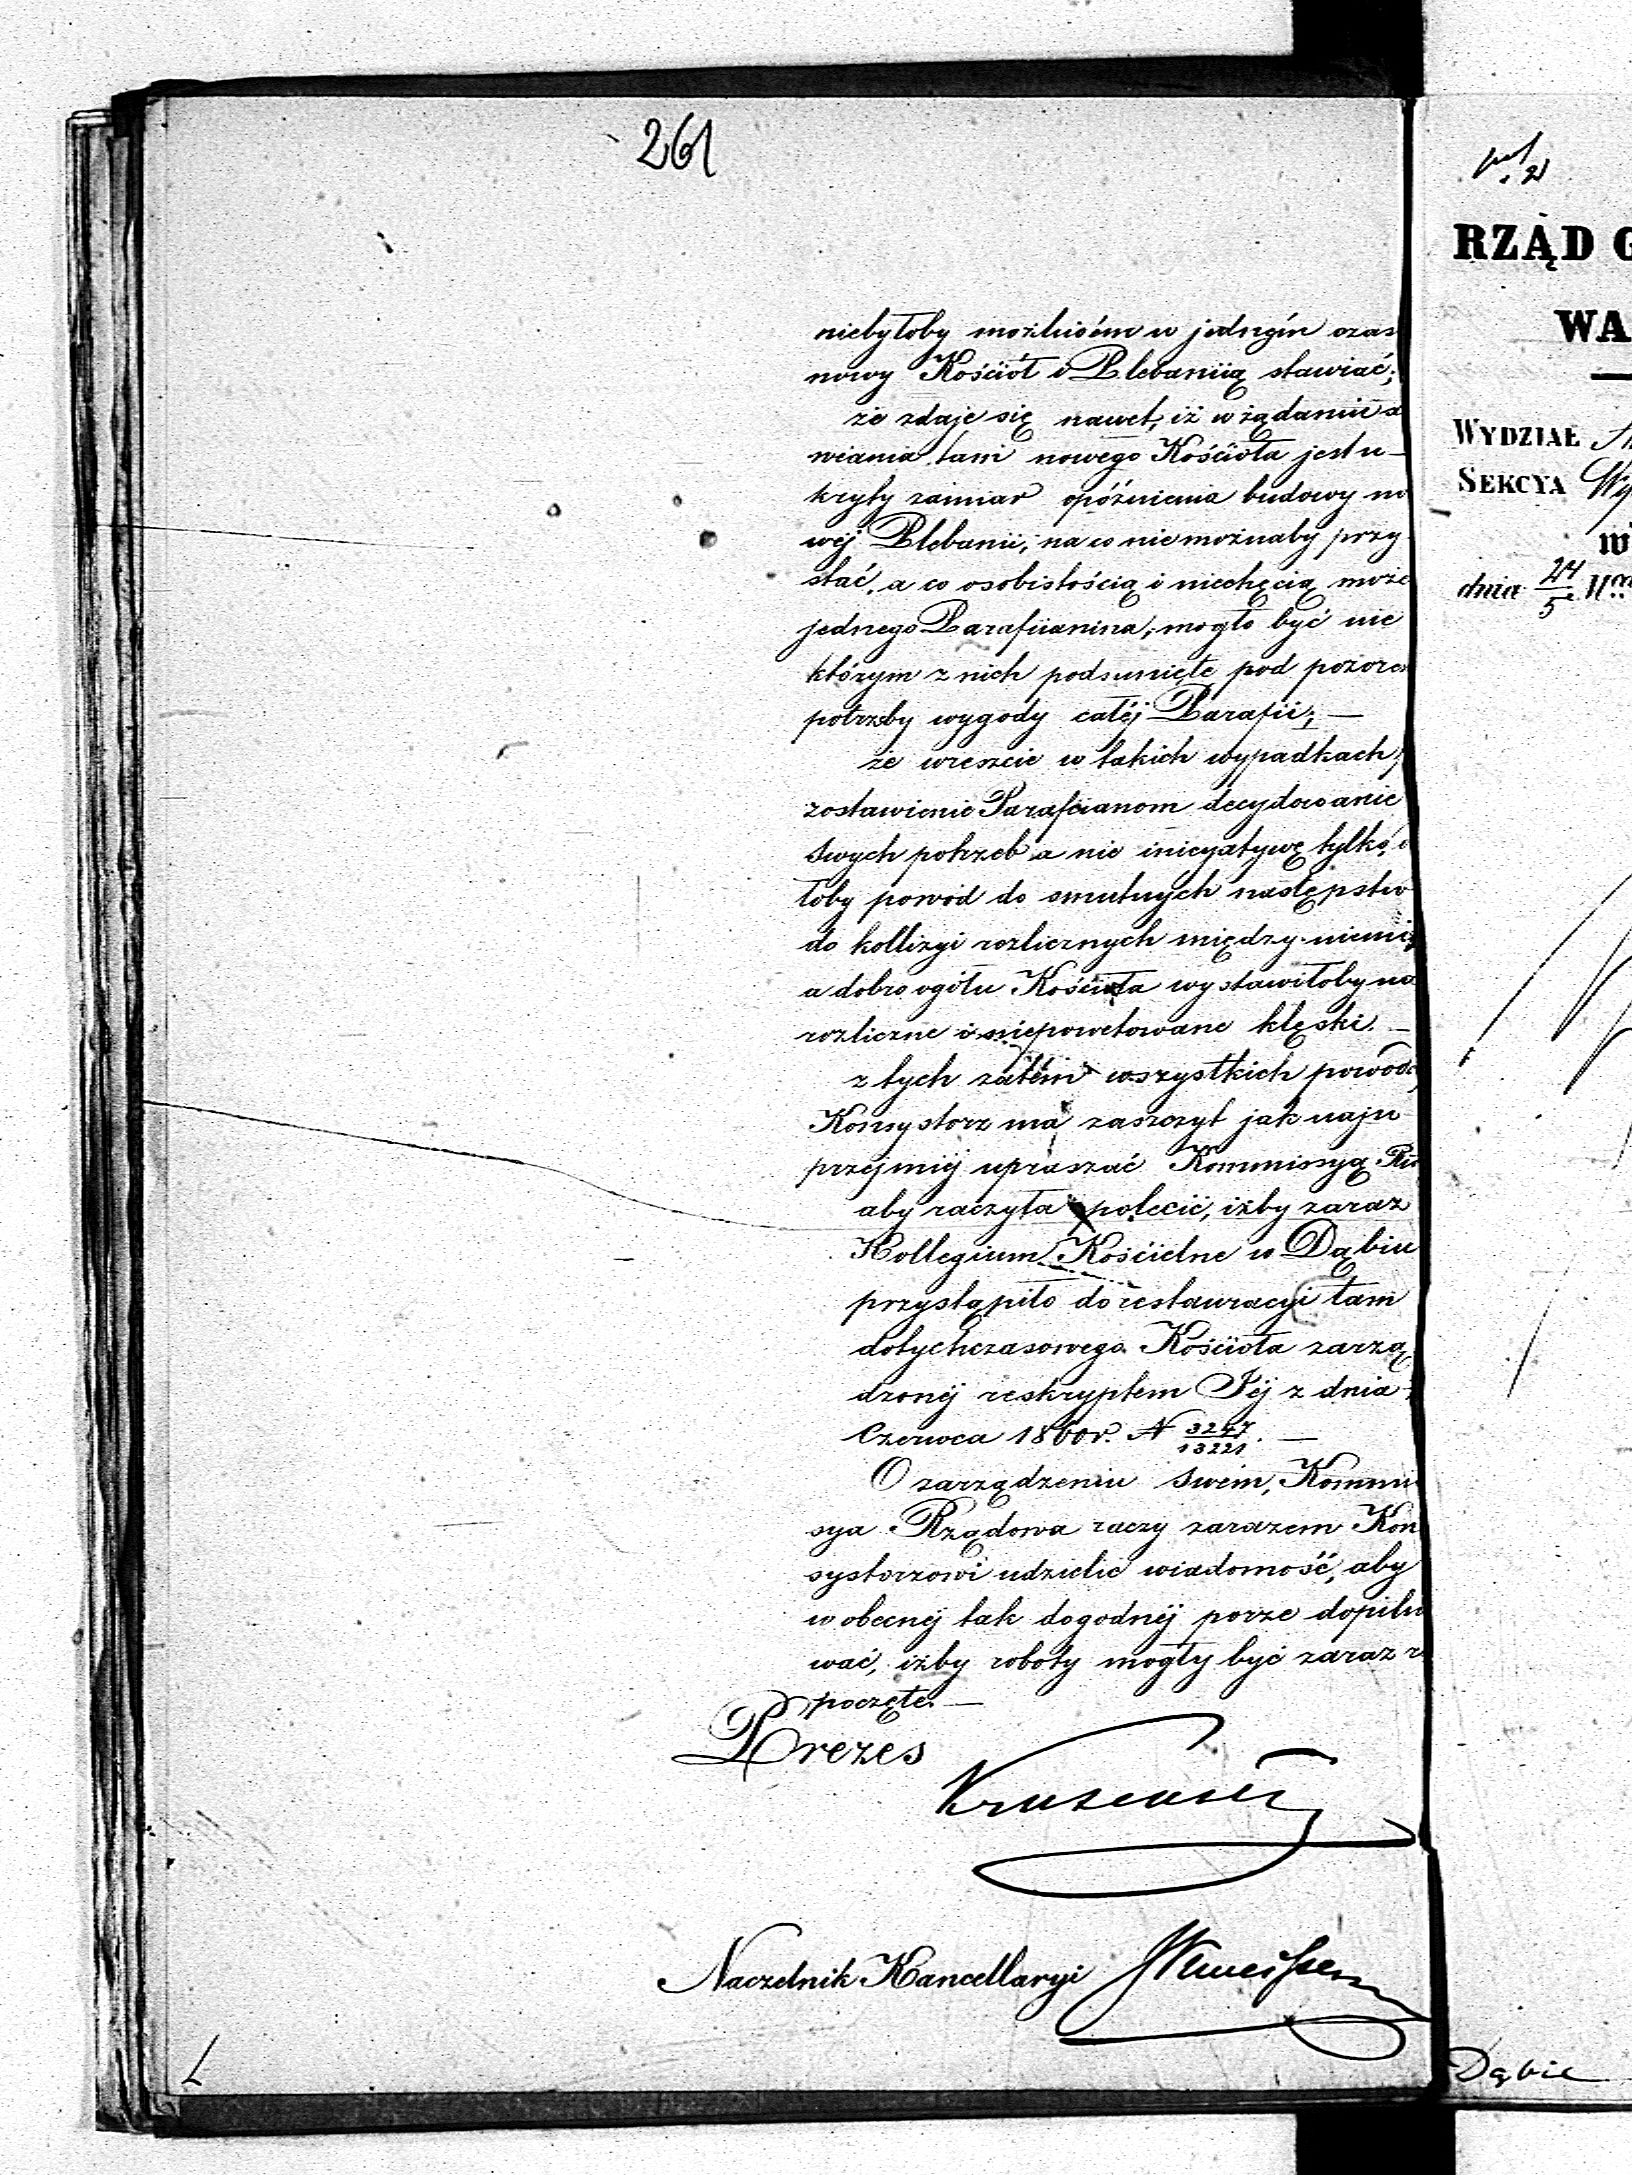 261
niebyłoby możliwém w jednym czas
nowy Kościół i Plebaniią stawiać;
że zdaje się nawet, iż w żądaniu s
wiania tam nowego Kościoła jest u-
kryty zamiar opóźnienia budowy no
wéj Plebanii, na co nie możnaby przy
stać, a co osobistością i niechęcią może
jednego Parafiianina, mogło być nie
którym z nich podsunięte pod pozorem
potrzeby wygody całéj Parafii; —
że wreszcie w takich wypadkach,
zostawienie Parafiianom decydowanie
swych potrzeb a nie inicyatywę tylko, d
łoby powód do smutnych następstw
do kollizyi rozlicznych między niemi,
a dobro ogółu Kościoła wystawiłoby na
rozliczne i niepowetowane klęski. —
z tych zatém wszystkich powodó
Konsystorz ma zaszczyt jak naju
przejmiéj upraszać Kommissyą Rzą
aby raczyła polecić, iżby zaraz
Kollegium Kościelne w Dąbiu
przystąpiło do restauracyi tam
dotychczasowego Kościoła zarzą
dzonéj reskryptem Jéj z dnia
Czerwca 1860r. N 3247/13221. —
O zarządzeniu swém, Kommis
sya Rządowa raczy zarazem Kon
systorzowi udzielić wiadomość, aby
w obecnéj tak dogodnéj porze dopilno
wać, iżby roboty mogły być zaraz r
poczęte. —
Prezes
Naczelnik Kancellaryi
RZĄD G
WA
WYDZIAŁ
SEKCYA
w
dnia 24/5
Dąbie